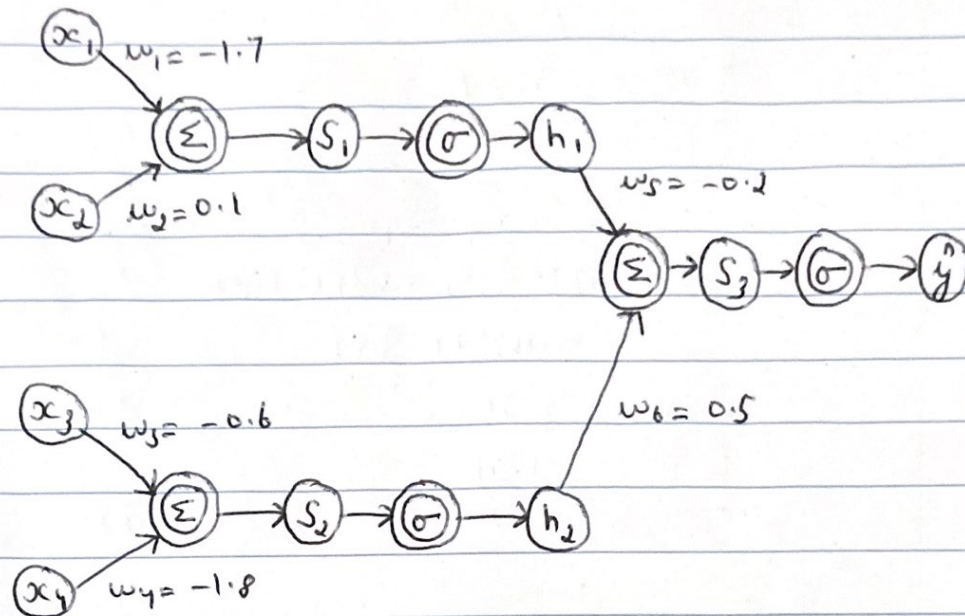 x₁
w₁ = -1.7
Σ
S₁
σ
h₁
x₂
w₂ = 0.1
w₅ = -0.2
Σ
S₃
σ
ŷ
x₃
w₃ = -0.6
w₆ = 0.5
Σ
S₂
σ
h₂
x₄
w₄ = -1.8